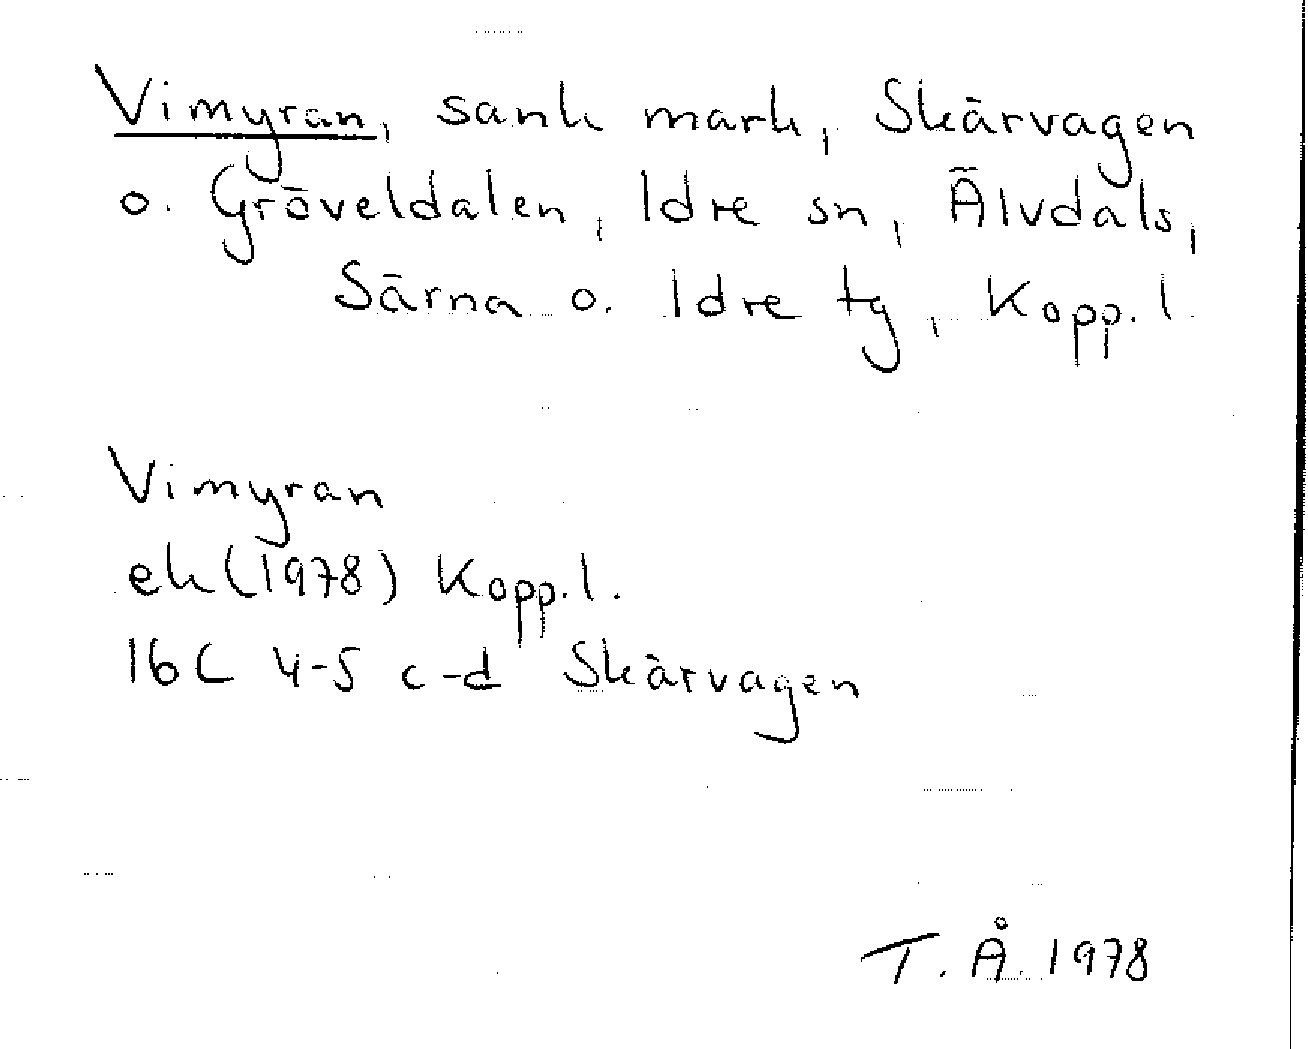 Vimyran, sank mark, Skärvagen
o. Gröveldalen, Idre sn, Älvdals,
Särna o. Idre tg, Kopp. l.
Vimyran
ek (1978) Kopp. l.
16C 4-5 c-d Skärvagen
T. Å. 1978